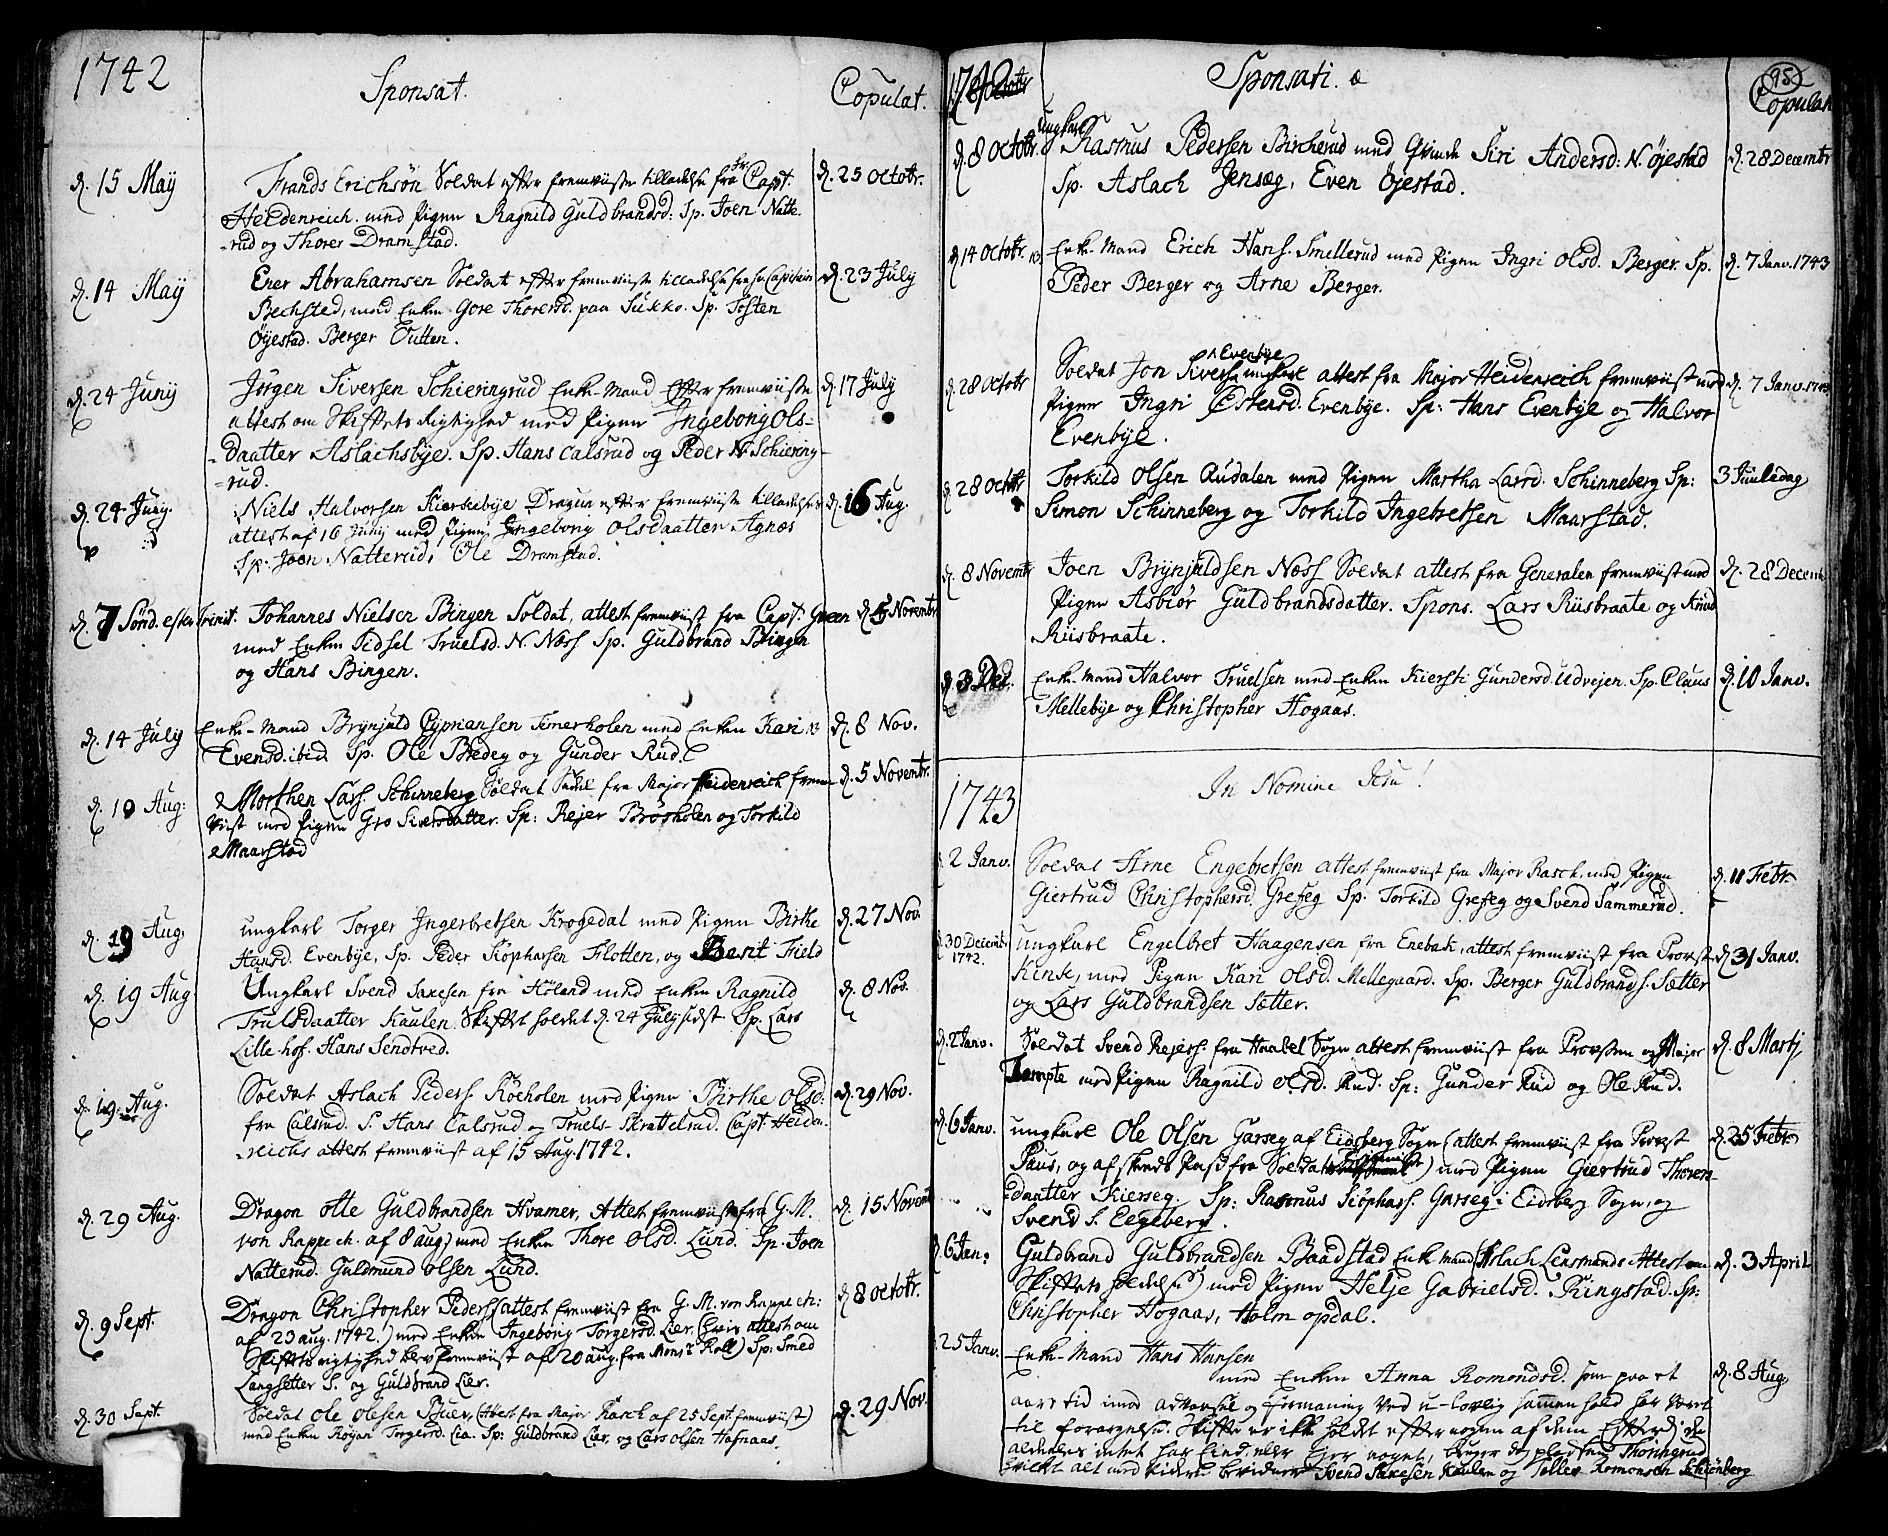 1742
Sponsat.
Copulat.
d. 15 Maÿ
Frands Erichsøn Soldat efter fremviiste tilladelse fra hr Capt.
d. 25 octobr.
Heidenreich. med Pigen Ragnild Guldbrandsd: Sp. Joen Natte-
-rud og Thorer Dramstad.
d. 14 Maÿ
Ener Abrahamsen Soldat efter fremviiste tilladelse fra hr Capitain
d. 23 July
Bechsted, med Enken Gore Thoresd. paa Sukke. Sp. Tosten
Øijestad. Berger Outten.
d. 24 Junÿ
Jørgen Siversen Schieringrud Enke-Mand Efter fremviiste
d. 17 July
attest om Skiftets Rigtighed med Pigen Ingeborg Ols-
-daatter Aslachsbÿe. Sp. Hans Calsrud og Peder N. Schiering-
-rud.
d. 24 Junÿ.
Niels Halvorsen Kierseibÿe Dragun efter fremviiste tilladelses
d. 16 Aug.
attest af 16 Junij med Pigen Ingeborg Olsdaatter Agnes
Sp: Joen Natterud, Ole Dramstad.
d. 7 Sønd. efter Trinit.
Johannes Nielsen Bingen Soldat, attest fremviist fra Capt. Green
d. 5 Novembr
med Enken Sidsel Truelsd. N. Næss Sp. Guldbrand Bingen
og Hans Bingen.
d. 14 Julÿ
Enke-Mand Brÿnjuld Cypriansen Timerholen med Enken Kari
d. 8 Nov.
Evensd. ibid. Sp. Ole Bredeg og Gunder Rud.
d. 10 Aug:
Morthen Lars. Schinneberg Soldat Sedel fra Major Heidenreich frem-
d. 5 Novembr.
viist med Pigen Gro Siversdatter. Sp: Rejer Brøsholen og Torkild
Maarstad
d. 19 Aug.
ungkarl Torger Ingerbretsen Krogedal med Pigen Birthe
d. 27 Nov.
Hansd. Evenbÿe, Sp. Peder Siøpharsen Flotten, og Berit Field
d. 19 Aug
Ungkarl Svend Saxesen fra Høland med Enken Ragnild
d. 8 Nov.
Trulsdaatter Kaulen. Skiftet holdet d. 24 Julÿ sidst. Sp. Lars
Lille-hof. Hans Sendtved.
d. 19. Aug.
Soldat Aslach Peders. Røeholen med Pigen Birthe Olsd:
d. 29 Nov.
fra Calsrud. S. Hans Calsrud og Truels Skrattelrud. Capt: Heiden-
-reichs attest fremviist af 15 Aug. 1742.
d. 29 Aug.
Dragon Otte Guldbrandsen Hvamer, Attest fremviist fra G.M.
d. 15 Novemb
von Rappe ch. af 8 aug. med Enken Thore Olsd. Lund. Sp. Joen
Natterud. Guldmund Olsen Lund.
d. 9 Sept.
Dragon Christopher Peders (attest fremviist fra G. M. von Rappe ch:
d. 8 octobr.
af 23 aug. 1742.) med Enken Ingeborig Torgersd. Lier. (hvis attest om
Skiftets rigtighed blev fremviist af 20 aug. fra Monsr Roll) Sp: Smed
Langsetter S. og Guldbrand Lier.
d. 30 Sept.
Soldat Ole Olesen Buer, (Attest fra Major Rasch af 25 Sept. fremviist)
d. 29 Nov.
med Enken Røjan Torgersd. Lia. Sp: Guldbrand Lier, og Lars Olsen Hafnaas.
Sponsati. æ
95
Copulat
d. 8 Octobr.
ungkarl Rasmus Pedersen Bircherud med Qvinde Siri Andersd: N. Øjestad
d. 28 Decembr
Sp. Aslach Jensæg, Even Øjestad.
d. 14 Octobr.
Enke-Mand Erich Hans. Smellerud med Pigen Ingri Olsd. Berger. Sp.
d. 7 Janv. 1743
Peder Berger og Arne Berger.
d. 28 Octobr
Soldat Jon Sivers. Evenbÿe ungkarl attest fra Major Heidenreich fremviist med
d. 7 Janv. 1743
Pigen Ingri Østensd. Evenbÿe. Sp: Hans Evenbÿe og Halvor
Evenbÿe.
d. 28 Octobr
Torkild Olsen Audalen med Pigen Martha Larsd. Schinneberg Sp:
3 Juuledag
Simon Schinneberg og Torkild Ingebretsen Maarstad.
d. 8 Novembr
Joen Brÿnjuldsen Næss Soldat attest fra Generalen fremviist med
d. 28 Decemb.
Pigen Asbiør Guldbrandsdatter. Spons. Lars Riisbraate og Knud
Riisbraate.
d. 3 Dec.
Enke-Mand Halvor Truelsen med Enken Kiersti Gundersd. Udvejen. Sp. Claus
d. 10 Janv.
Mellebÿe og Christopher Hogaas.
1743
In Nomine Jesu!
2 Janv.
Soldat Arne Engebretsen attest fremviist fra Major Rasch, med Pigen
d. 11 Febr.
Giertrud Christophersd. Grefeg Sp. Torkild Grefeg og Svend Sammerud.
d. 30 Decembr 1742.
ungkarl Engelbret Haagensen fra Enebak, attest fremviist fra Provst
d. 31 Janv.
Kinck, med Pigen Kari Olsd. Mellegaard. Sp. Berger Guldbrands. Sætter
og Lars Guldbrandsen Sætter.
d. 2 Janv.
Soldat Svend Rejers. fra Haabel Sogn attest fremviist fra Provsten og Major
d. 8 Martj
Kempte med Pigen Ragnild Olsd. Rud. Sp: Gunder Rud og Ole Rud.
d. 6 Janv.
ungkarl Ole Olsen Garseg af Eidsberg Sogn (attest fremviist fra Provst
d. 25 Febr.
Paus, og afskeeds Pass fra Soldat) med Pigen Giertrud Thores-
-daatter Kierseg. Sp: Rasmus Siøphars. Garseg i Eidsberg Sogn, og
Svend S. Eegeberg.
d. 6 Jan:
Guldbrand Guldbrandsen Baadstad Enke-mand (Aslach Lensmands Attest om
d. 3 April
Skiftets holdelse) med Pigen Helje Gabrielsd. Kingstad. Sp:
Christopher Hogaas, Holm opdal.
25 Janv.
Enke-Mand Hans Hansen
med Enken Anna Romondsd. som paa et
d. 8 Aug.
aars tid imod advarsel og formaning ved u-lovlig sammenhold har været
til forargelse. Skifte er ikke holdet efter nogen af dem Efterdi de
aldeles intet har
Svend Saxesen Kaulen og Tollev Romonsen Schiønberg